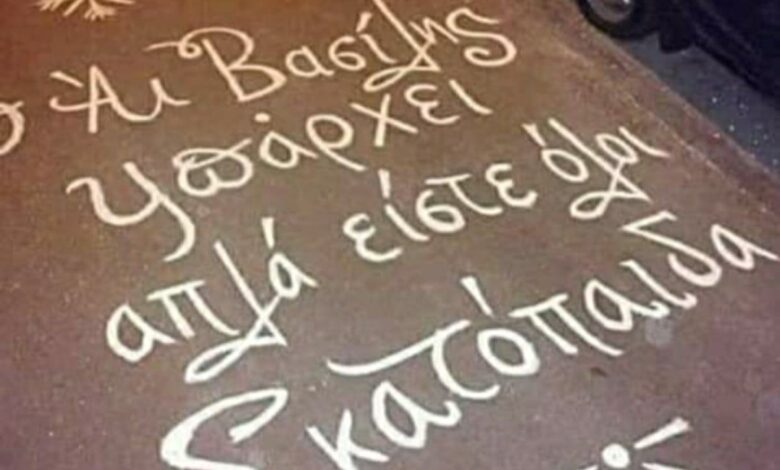 ο Άι Βασίλης
υπάρχει
απλά είστε όλοι
Σκατόπαιδα
!